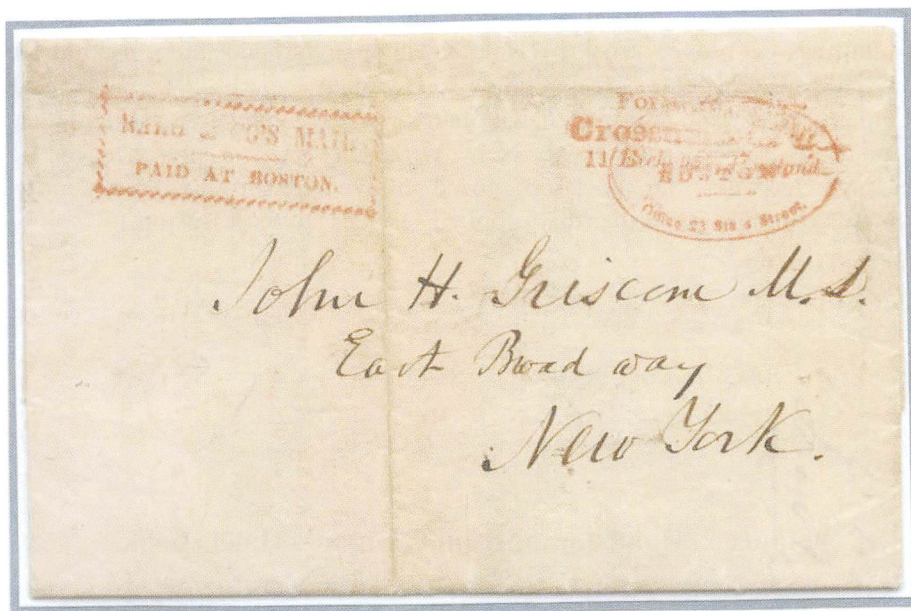 CO'S MAIL
PAID AT BOSTON.
BOSTON
Office 23 Street.
John H. Griscom M.D.
East Broad way
New York.